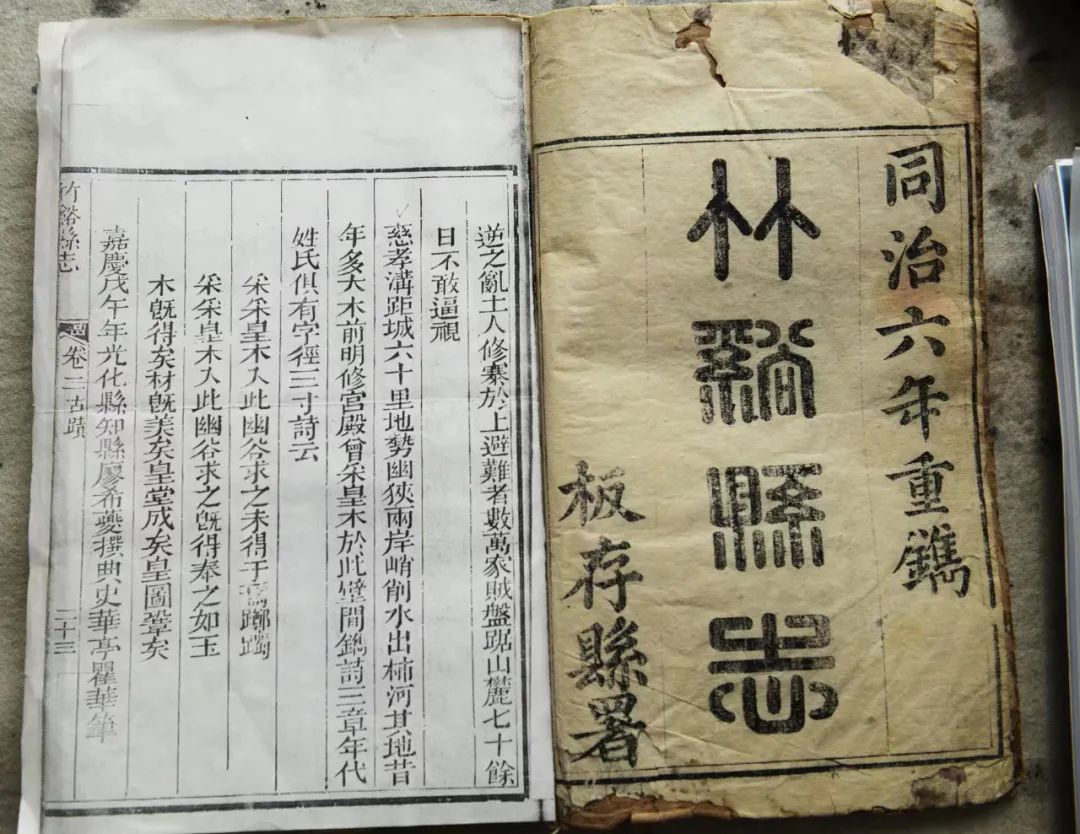 同治六年重鐫
竹谿縣志
板存縣署
逆之亂土人修寨於上避難者數萬家賊盤踞山麓七十餘
日不敢逼視
慈孝溝距城六十里地勢幽狹兩岸峭削水出柿河其地昔
年多大木前明修宮殿曾采皇木於此壁間鐫詩三章年代
姓氏俱有字徑三寸詩云
采采皇木入此幽谷求之未得于焉躑躅
采采皇木入此幽谷求之既得奉之如玉
木既得矣材既美矣皇堂成矣皇圖鞏矣
嘉慶戊午年光化縣知縣廖希夔撰典史華亭瞿華筆
竹谿縣志 卷二古蹟 二十三